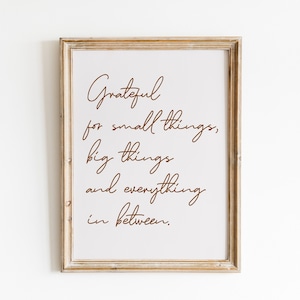 Grateful
for small things,
big things
and everything
in between.